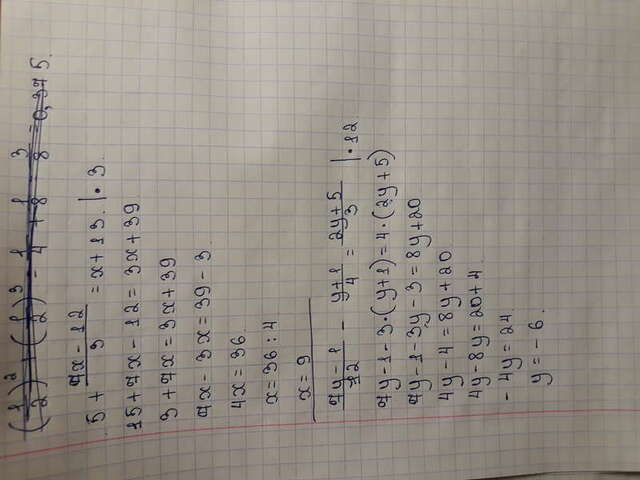 (1/2)² + (1/2)³ = 1/4 + 1/8 = 3/8 = 0,375.
5 + (7x - 12)/3 = x + 13. | · 3.
15 + 7x - 12 = 3x + 39
3 + 7x = 3x + 39
7x - 3x = 39 - 3.
4x = 36.
x = 36 : 4
x = 9
(7y - 1)/12 - (y + 1)/4 = (2y + 5)/3 | · 12
7y - 1 - 3 · (y + 1) = 4 · (2y + 5)
7y - 1 - 3y - 3 = 8y + 20
4y - 4 = 8y + 20
4y - 8y = 20 + 4.
- 4y = 24.
y = - 6.